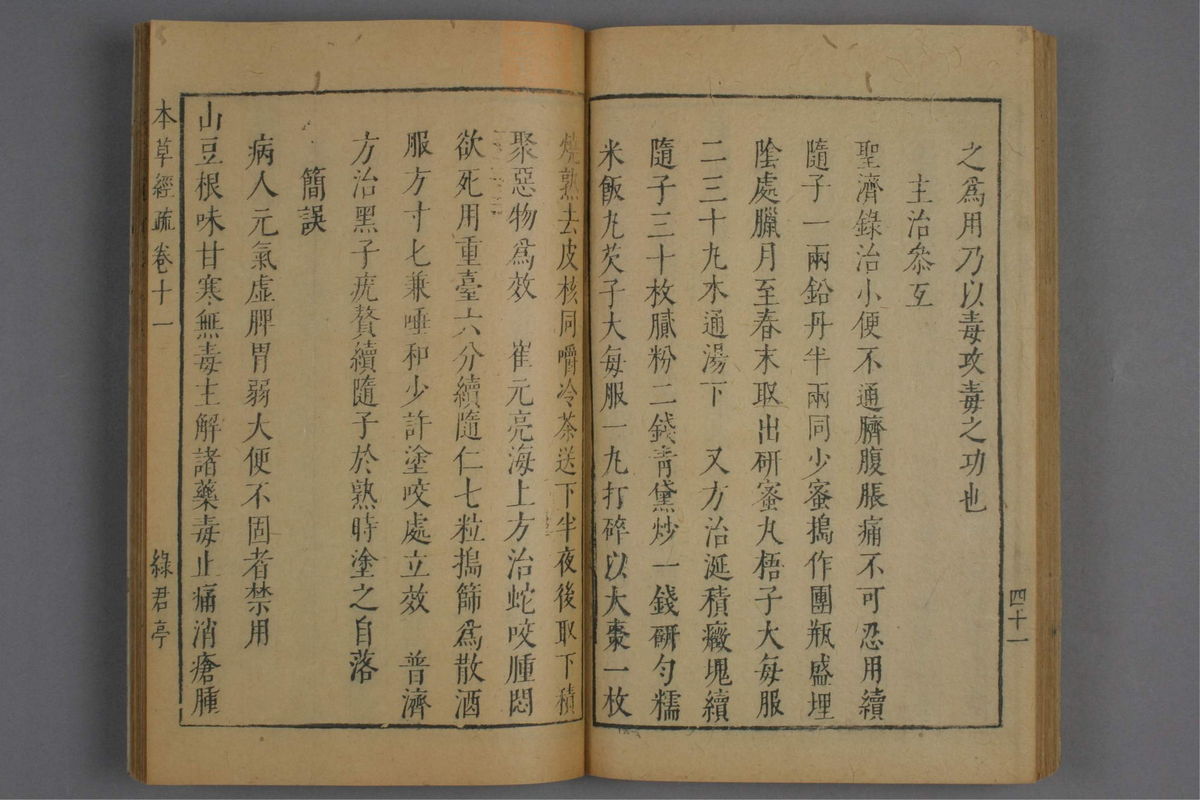 之爲用乃以毒攻毒之功也
主治叅互
聖濟錄治小便不通臍腹脹痛不可忍用續
隨子一兩鉛丹半兩同少蜜搗作團瓶盛埋
陰處臘月至春末取出研蜜丸梧子大每服
二三十丸木通湯下　又方治涎積癥塊續
隨子三十枚膩粉二錢青黛炒一錢硏勻糯
米飯丸芡子大每服一丸打碎以大棗一枚
四十一
燒熟去皮核同嚼冷茶送下半夜後取下積
聚惡物爲效　崔元亮海上方治蛇咬腫悶
欲死用重臺六分續隨仁七粒搗篩爲散酒
服方寸匕兼唾和少許塗咬處立效　普濟
方治黑子疣贅續隨子於熟時塗之自落
簡誤
病人元氣虛脾胃弱大便不固者禁用
山豆根味甘寒無毒主解諸藥毒止痛消瘡腫
本草經疏卷十一
綠君亭